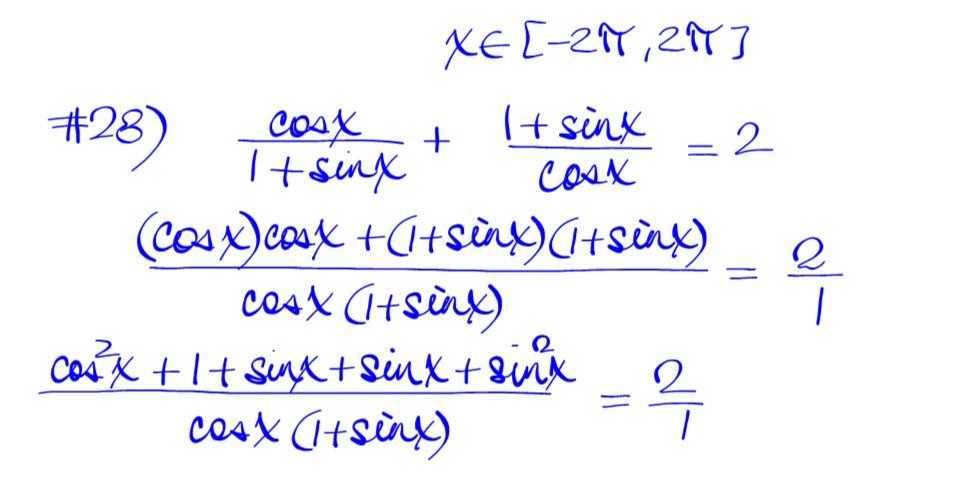 x∈[-2π,2π]
#28) cosx/(1+sinx) + (1+sinx)/cosx = 2
((cosx)cosx+(1+sinx)(1+sinx))/(cosx(1+sinx)) = 2/1
(cos²x+1+sinx+sinx+sin²x)/(cosx(1+sinx)) = 2/1